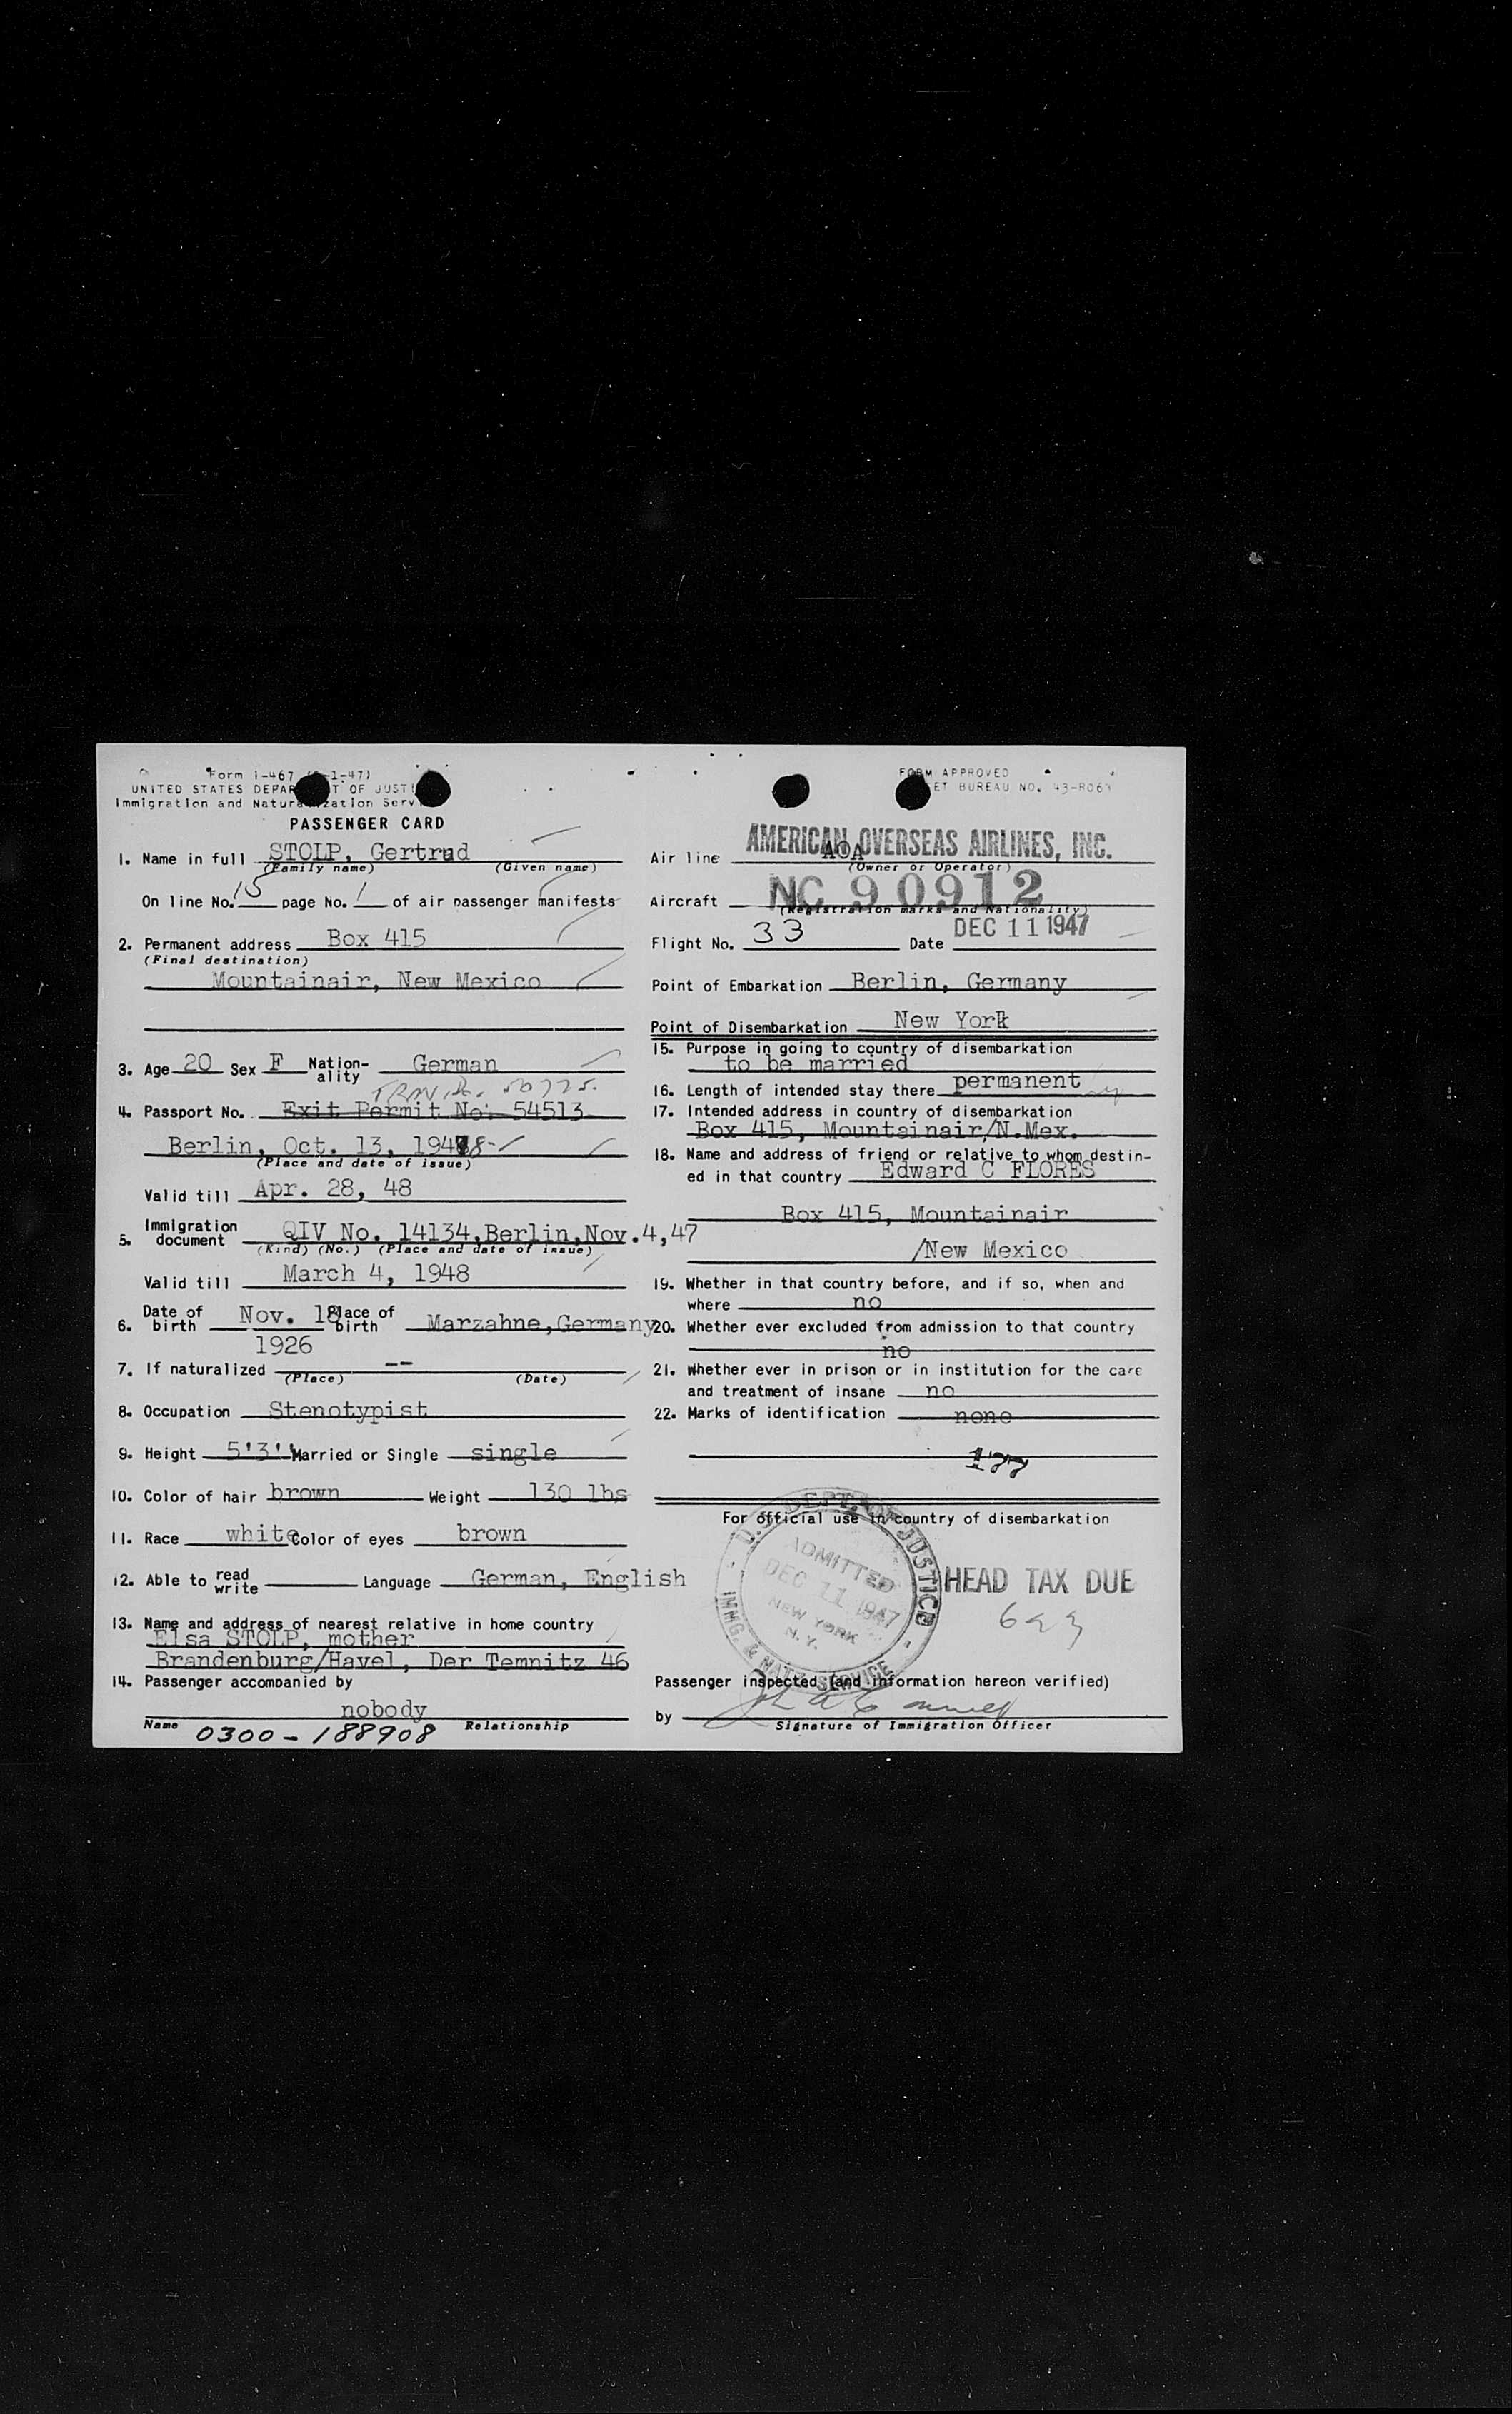 Form I-467 -1-47)
UNITED STATES DEPAR T OF JUST
Immigration and Natura zation Serv
PASSENGER CARD
1. Name in full STOLP, Gertrud
(Family name) (Given name)
On line No. 15 page No. 1 of air passenger manifests
2. Permanent address Box 415
(Final destination)
Mountainair, New Mexico
3. Age 20 Sex F Nation-ality German
50775.
4. Passport No. Exit Permit No: 54513
Berlin, Oct. 13, 194
(Place and date of issue)
Valid till Apr. 28, 48
5. Immigration document QIV No. 14134,Berlin,Nov.4,47
(Kind) (No.) (Place and date of issue)
Valid till March 4, 1948
6. Date of birth Nov. 18 Place of birth Marzahne,Germany
1926
7. If naturalized --
(Place) (Date)
8. Occupation Stenotypist
9. Height 5'3'' Married or Single single
10. Color of hair brown Weight 130 lbs
11. Race white Color of eyes brown
12. Able to read write Language German, English
13. Name and address of nearest relative in home country
Elsa STOLP, mother
Brandenburg/Havel, Der Temnitz 46
14. Passenger accompanied by
nobody
Name Relationship
0300-188908
FORM APPROVED
ET BUREAU NO. 43-R061
Air line AMERICAN OVERSEAS AIRLINES, INC.
AOA
(Owner or Operator)
Aircraft NC 90912
(Registration marks and Nationality)
Flight No. 33 Date DEC 11 1947
Point of Embarkation Berlin, Germany
Point of Disembarkation New York
15. Purpose in going to country of disembarkation
to be married
16. Length of intended stay there permanent
17. Intended address in country of disembarkation
Box 415, Mountainair/N.Mex.
18. Name and address of friend or relative to whom destin-
ed in that country Edward C FLORES
Box 415, Mountainair
/New Mexico
19. Whether in that country before, and if so, when and
where no
20. Whether ever excluded from admission to that country
no
21. Whether ever in prison or in institution for the care
and treatment of insane no
22. Marks of identification none
For official use in country of disembarkation
U.S. DEPT. OF JUSTICE
ADMITTED
DEC 11 1947
NEW YORK
N.Y.
IMMG. & NATZ. SERVICE
HEAD TAX DUE
Passenger inspected (and information hereon verified)
by
Signature of Immigration Officer